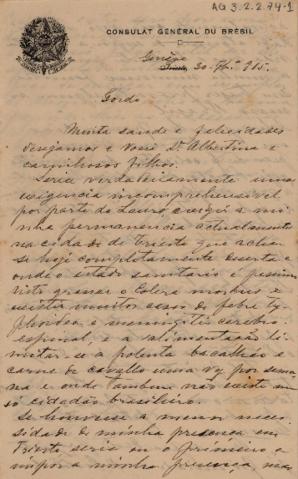 AG 3.2.2.74-1
CONSULAT GÉNÉRAL DU BRÉSIL
Genève
30 - 915.
Gordo
Muita saude e felicidades
desejamos a Você, Dª Albertina e
carinhosos filhos.
Seria verdadeiramente uma
exigencia incomprehensivel
por parte do Lauro, exigir a mi-
nha permanencia actualmente
na cidade de Trieste que acha-
se hoje completamente deserta e
onde o estado sanitario é pessimo
visto grassar o Colera morbus e
existir muitos casos de febre ty-
phoidea e meningite cerebro-
espinal, e a alimentação li-
mitar-se a polenta bacalhão e
carne de cavallo uma vez por sema-
na e onde tambem não existe um
só cidadão brasileiro.
Se houvesse a menor neces-
sidade de minha presença em
Trieste seria eu o primeiro a
impor a minha presença, mas